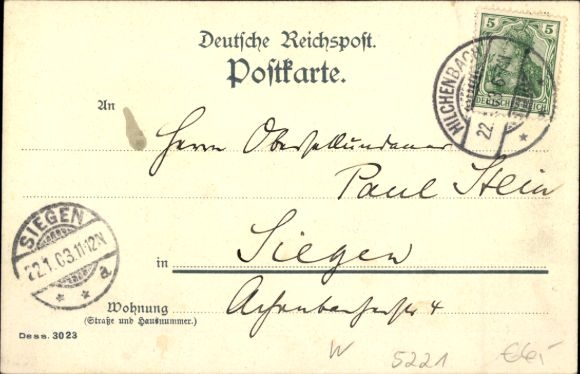 Deutsche Reichspost.
Postkarte.
5 5
DEUTSCHES REICH
HILCHENBACH
22.
An
Herrn
Paul Stein
SIEGEN
22.1.03.11-12V
a
* *
in Siegen
Wohnung
(Straße und Hausnummer.)
4
Dess. 3023
W 5221